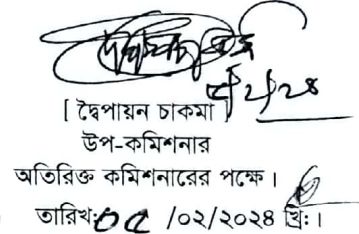 ৫/২/২৪
[ দ্বৈপায়ন চাকমা ]
উপ-কমিশনার
অতিরিক্ত কমিশনারের পক্ষে।
তারিখ: ০৫ /০২/২০২৪ খ্রি:।